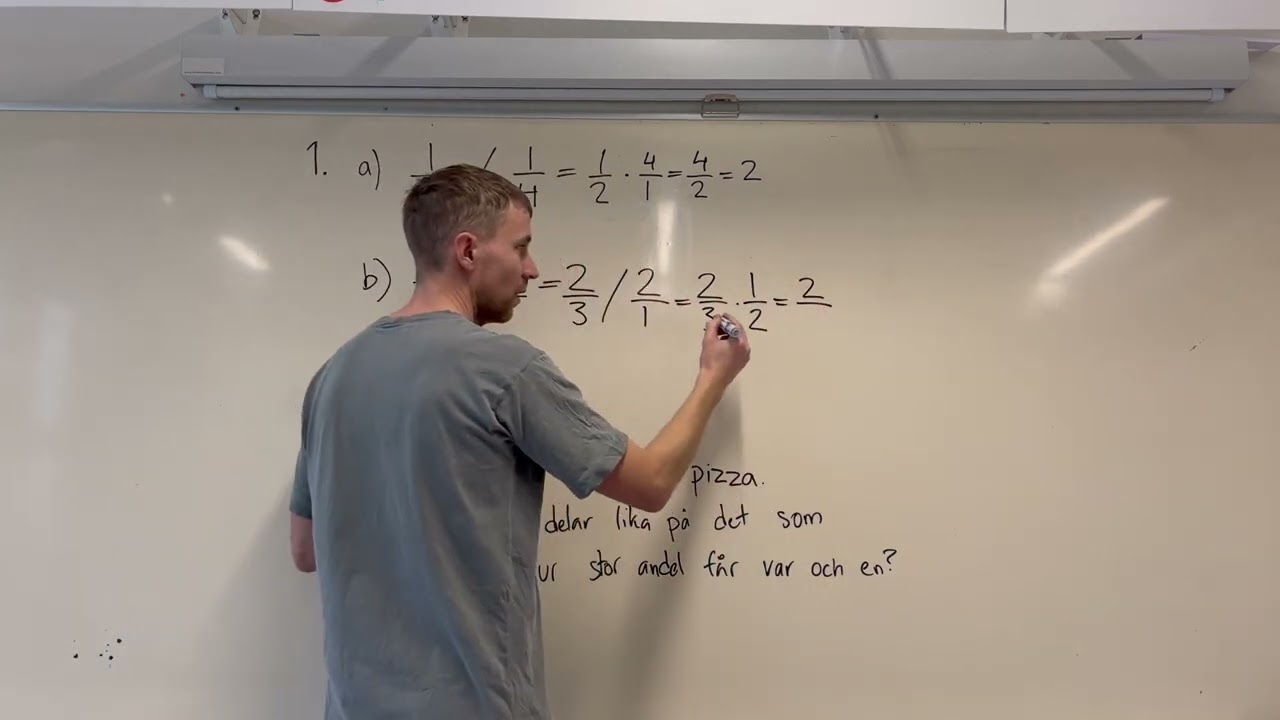 1. a) 1 / 1/4 = 1/2 · 4/1 = 4/2 = 2
b) = 2/3 / 2/1 = 2/3 · 1/2 = 2
pizza.
delar lika på det som
ur stor andel får var och en?